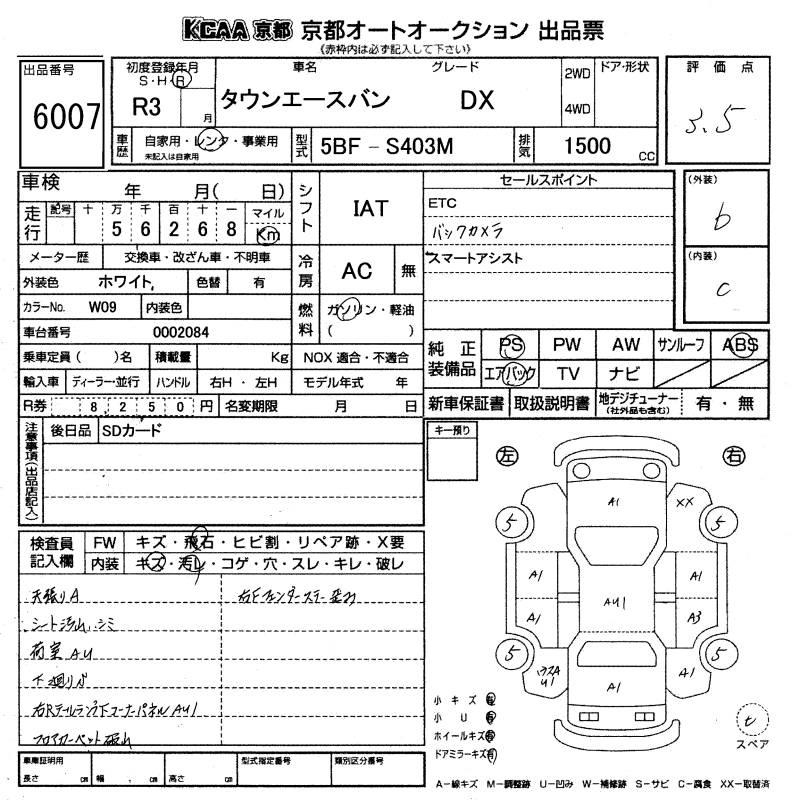 KCAA 京都 京都オートオークション 出品票
《赤枠内は必ず記入して下さい》
出品番号
6007
初度登録年月
S・H・R
R3
月
車名
グレード
タウンエースバン DX
2WD
4WD
ドア・形状
評価点
3.5
車歴
自家用・レンタ・事業用
未記入は自家用
型式
5BF－S403M
排気
1500
CC
車検
年 月( 日)
走行
記号 十 万 千 百 十 一 マイル
5 6 2 6 8 Km
メーター歴
交換車・改ざん車・不明車
外装色
ホワイト,
色替
有
カラーNo.
W09
内装色
車台番号
0002084
乗車定員( )名
積載量
Kg
NOX 適合・不適合
輸入車
ディーラー・並行
ハンドル
右H・左H
モデル年式 年
R券
8,250円
名変期限 月 日
シフト
IAT
冷房
AC
無
燃料
ガソリン・軽油
( )
セールスポイント
ETC
バックカメラ
スマートアシスト
(外装)
b
(内装)
c
純正装備品
PS PW AW サンルーフ ABS
エアバック TV ナビ
新車保証書 取扱説明書 地デジチューナー
(社外品も含む)
有・無
注意事項(出品店記入)
後日品
SDカード
キー預り
左
右
検査員記入欄
FW
キズ・飛石・ヒビ割・リペア跡・X要
内装
キズ・汚レ・コゲ・穴・スレ・キレ・破レ
天張りA
シート汚れ シミ
荷室 AU
下廻りS
右Rテールランプ下コーナーパネルAU1
フロアカーペット破れ
右Fフェンダーステー歪み
A1
XX
5
5
A1
A1
AU1
A1
A3
5
5
U1
A1
A1
小キズ有
小U有
ホイールキズ有
ドアミラーキズ有
t
スペア
車庫証明用
長さ cm
幅 . cm
高さ cm
型式指定番号
類別区分番号
A－線キズ M－調整跡 U－凹み W－補修跡 S－サビ C－腐食 XX－取替済